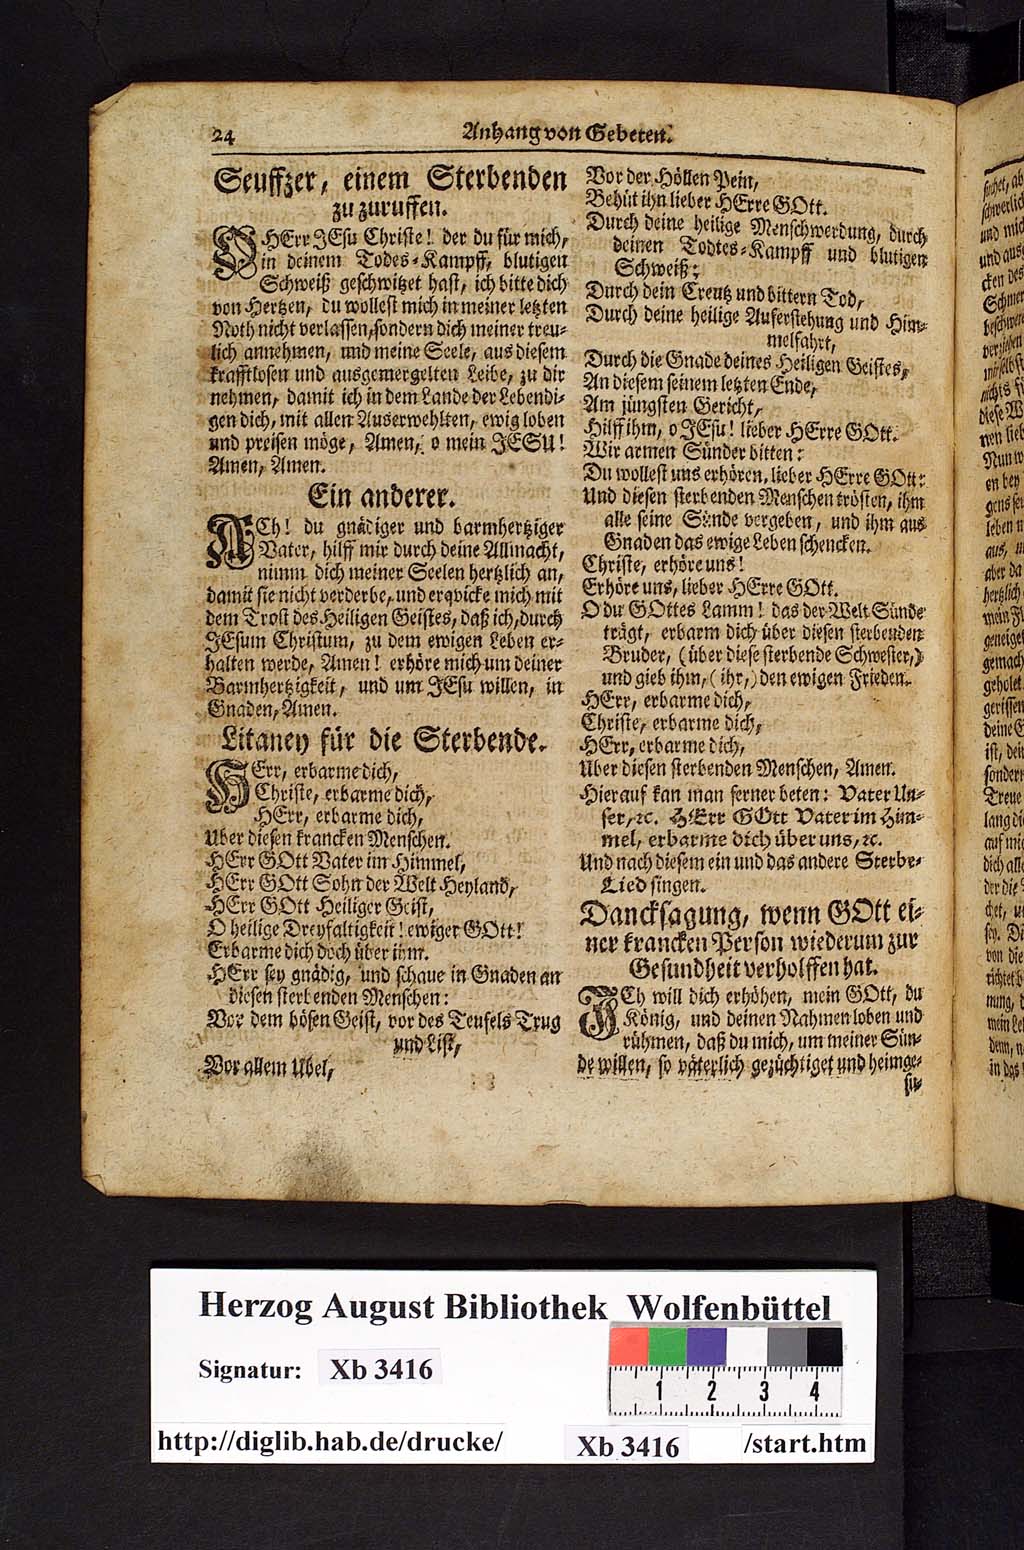 24
Anhang von Gebeten.
Seuffzer, einem Sterbenden
zu zuruffen.
O HErr JEsu Christe! der du für mich,
in deinem Todes-Kampff, blutigen
Schweiß geschwitzet hast, ich bitte dich
von Hertzen, du wollest mich in meiner letzten
Noth nicht verlassen, sondern dich meiner treu-
lich annehmen, und meine Seele, aus diesem
krafftlosen und ausgemergelten Leibe, zu dir
nehmen, damit ich in dem Lande der Lebendi-
gen dich, mit allen Auserwehlten, ewig loben
und preisen möge, Amen, o mein JESU!
Amen, Amen.
Ein anderer.
ACh! du gnädiger und barmhertziger
Vater, hilff mir durch deine Allmacht,
nimm dich meiner Seelen hertzlich an,
damit sie nicht verderbe, und erqvicke mich mit
dem Trost des Heiligen Geistes, daß ich, durch
JEsum Christum, zu dem ewigen Leben er-
halten werde, Amen! erhöre mich um deiner
Barmhertzigkeit, und um JEsu willen, in
Gnaden, Amen.
Litaney für die Sterbende.
HErr, erbarme dich,
Christe, erbarme dich,
HErr, erbarme dich,
Uber diesen krancken Menschen.
HErr GOtt Vater im Himmel,
HErr GOtt Sohn der Welt Heyland,
HErr GOtt Heiliger Geist,
O heilige Dreyfaltigkeit! ewiger GOtt!
Erbarme dich doch über ihm.
HErr sey gnädig, und schaue in Gnaden an
diesen sterbenden Menschen:
Vor dem bösen Geist, vor des Teufels Trug
und List,
Vor allem Ubel,
Vor der Höllen Pein,
Behüt ihn lieber HErre GOtt.
Durch deine heilige Menschwerdung, durch
deinen Todtes-Kampff und blutigen
Schweiß:
Durch dein Creutz und bittern Tod,
Durch deine heilige Auferstehung und Him-
melfahrt,
Durch die Gnade deines Heiligen Geistes,
An diesem seinem letzten Ende,
Am jüngsten Gericht,
Hilff ihm, o JEsu! lieber HErre GOtt.
Wir armen Sünder bitten:
Du wollest uns erhören, lieber HErre GOtt:
Und diesen sterbenden Menschen trösten, ihm
alle seine Sünde vergeben, und ihm aus
Gnaden das ewige Leben schencken.
Christe, erhöre uns!
Erhöre uns, lieber HErre GOtt.
O du GOttes Lamm! das der Welt Sünde
trägt, erbarm dich über diesen sterbenden
Bruder, (über diese sterbende Schwester,)
und gieb ihm, (ihr,) den ewigen Frieden.
HErr, erbarme dich,
Christe, erbarme dich,
HErr, erbarme dich,
Uber diesen sterbenden Menschen, Amen.
Hierauf kan man ferner beten: Vater Un-
ser, ꝛc. HErr GOtt Vater im Him-
mel, erbarme dich über uns, ꝛc.
Und nach diesem ein und das andere Sterbe-
Lied singen.
Dancksagung, wenn GOtt ei-
ner krancken Person wiederum zur
Gesundheit verholffen hat.
JCh will dich erhöhen, mein GOtt, du
König, und deinen Nahmen loben und
rühmen, daß du mich, um meiner Sün-
de willen, so väterlich gezüchtiget und heimge-
su-
Herzog August Bibliothek Wolfenbüttel
Signatur: Xb 3416
1 2 3 4
http://diglib.hab.de/drucke/ Xb 3416 /start.htm